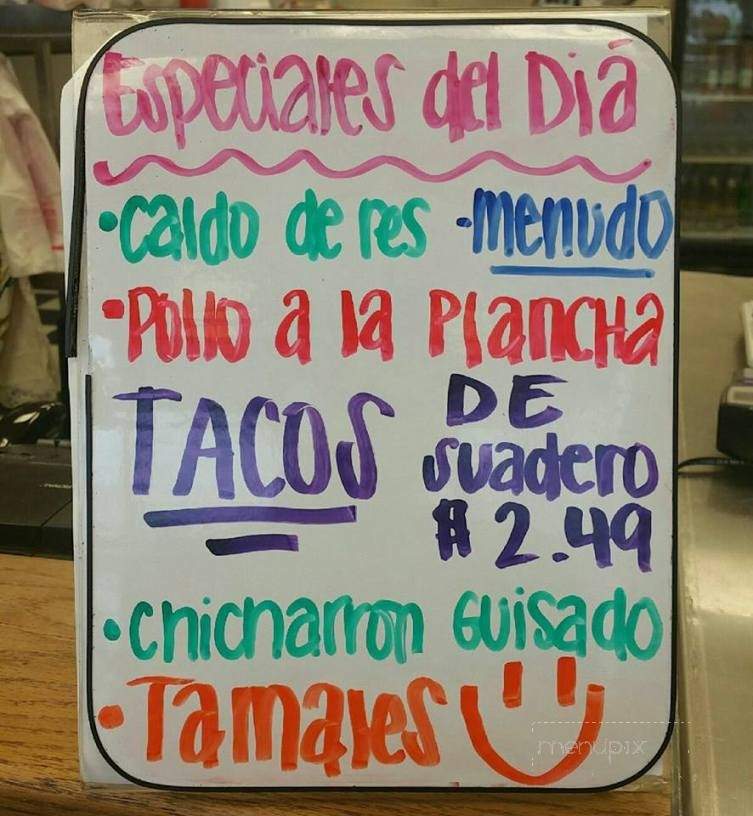 Especiales del Diá
•Caldo de res •menudo
•Pollo a la PlancHa
TACOS DE
suadero
$2.49
•chicharron Guisado
•Tamales
menupix